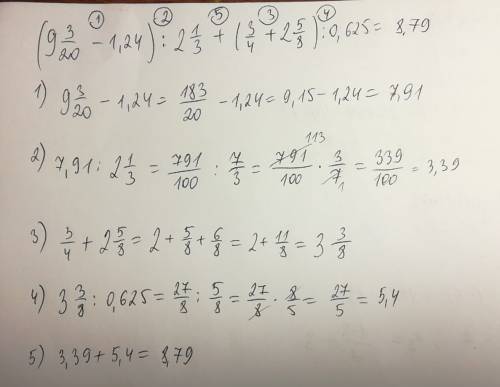 ① ② ⑤ ③ ④
(9 3/20 - 1,24) : 2 1/3 + (3/4 + 2 5/8) : 0,625 = 8,79
1) 9 3/20 - 1,24 = 183/20 - 1,24 = 9,15 - 1,24 = 7,91
2) 7,91 : 2 1/3 = 791/100 : 7/3 = 791/100 · 3/7 = 339/100 = 3,39
113
1
3) 3/4 + 2 5/8 = 2 + 5/8 + 6/8 = 2 + 11/8 = 3 3/8
4) 3 3/8 : 0,625 = 27/8 : 5/8 = 27/8 · 8/5 = 27/5 = 5,4
5) 3,39 + 5,4 = 8,79